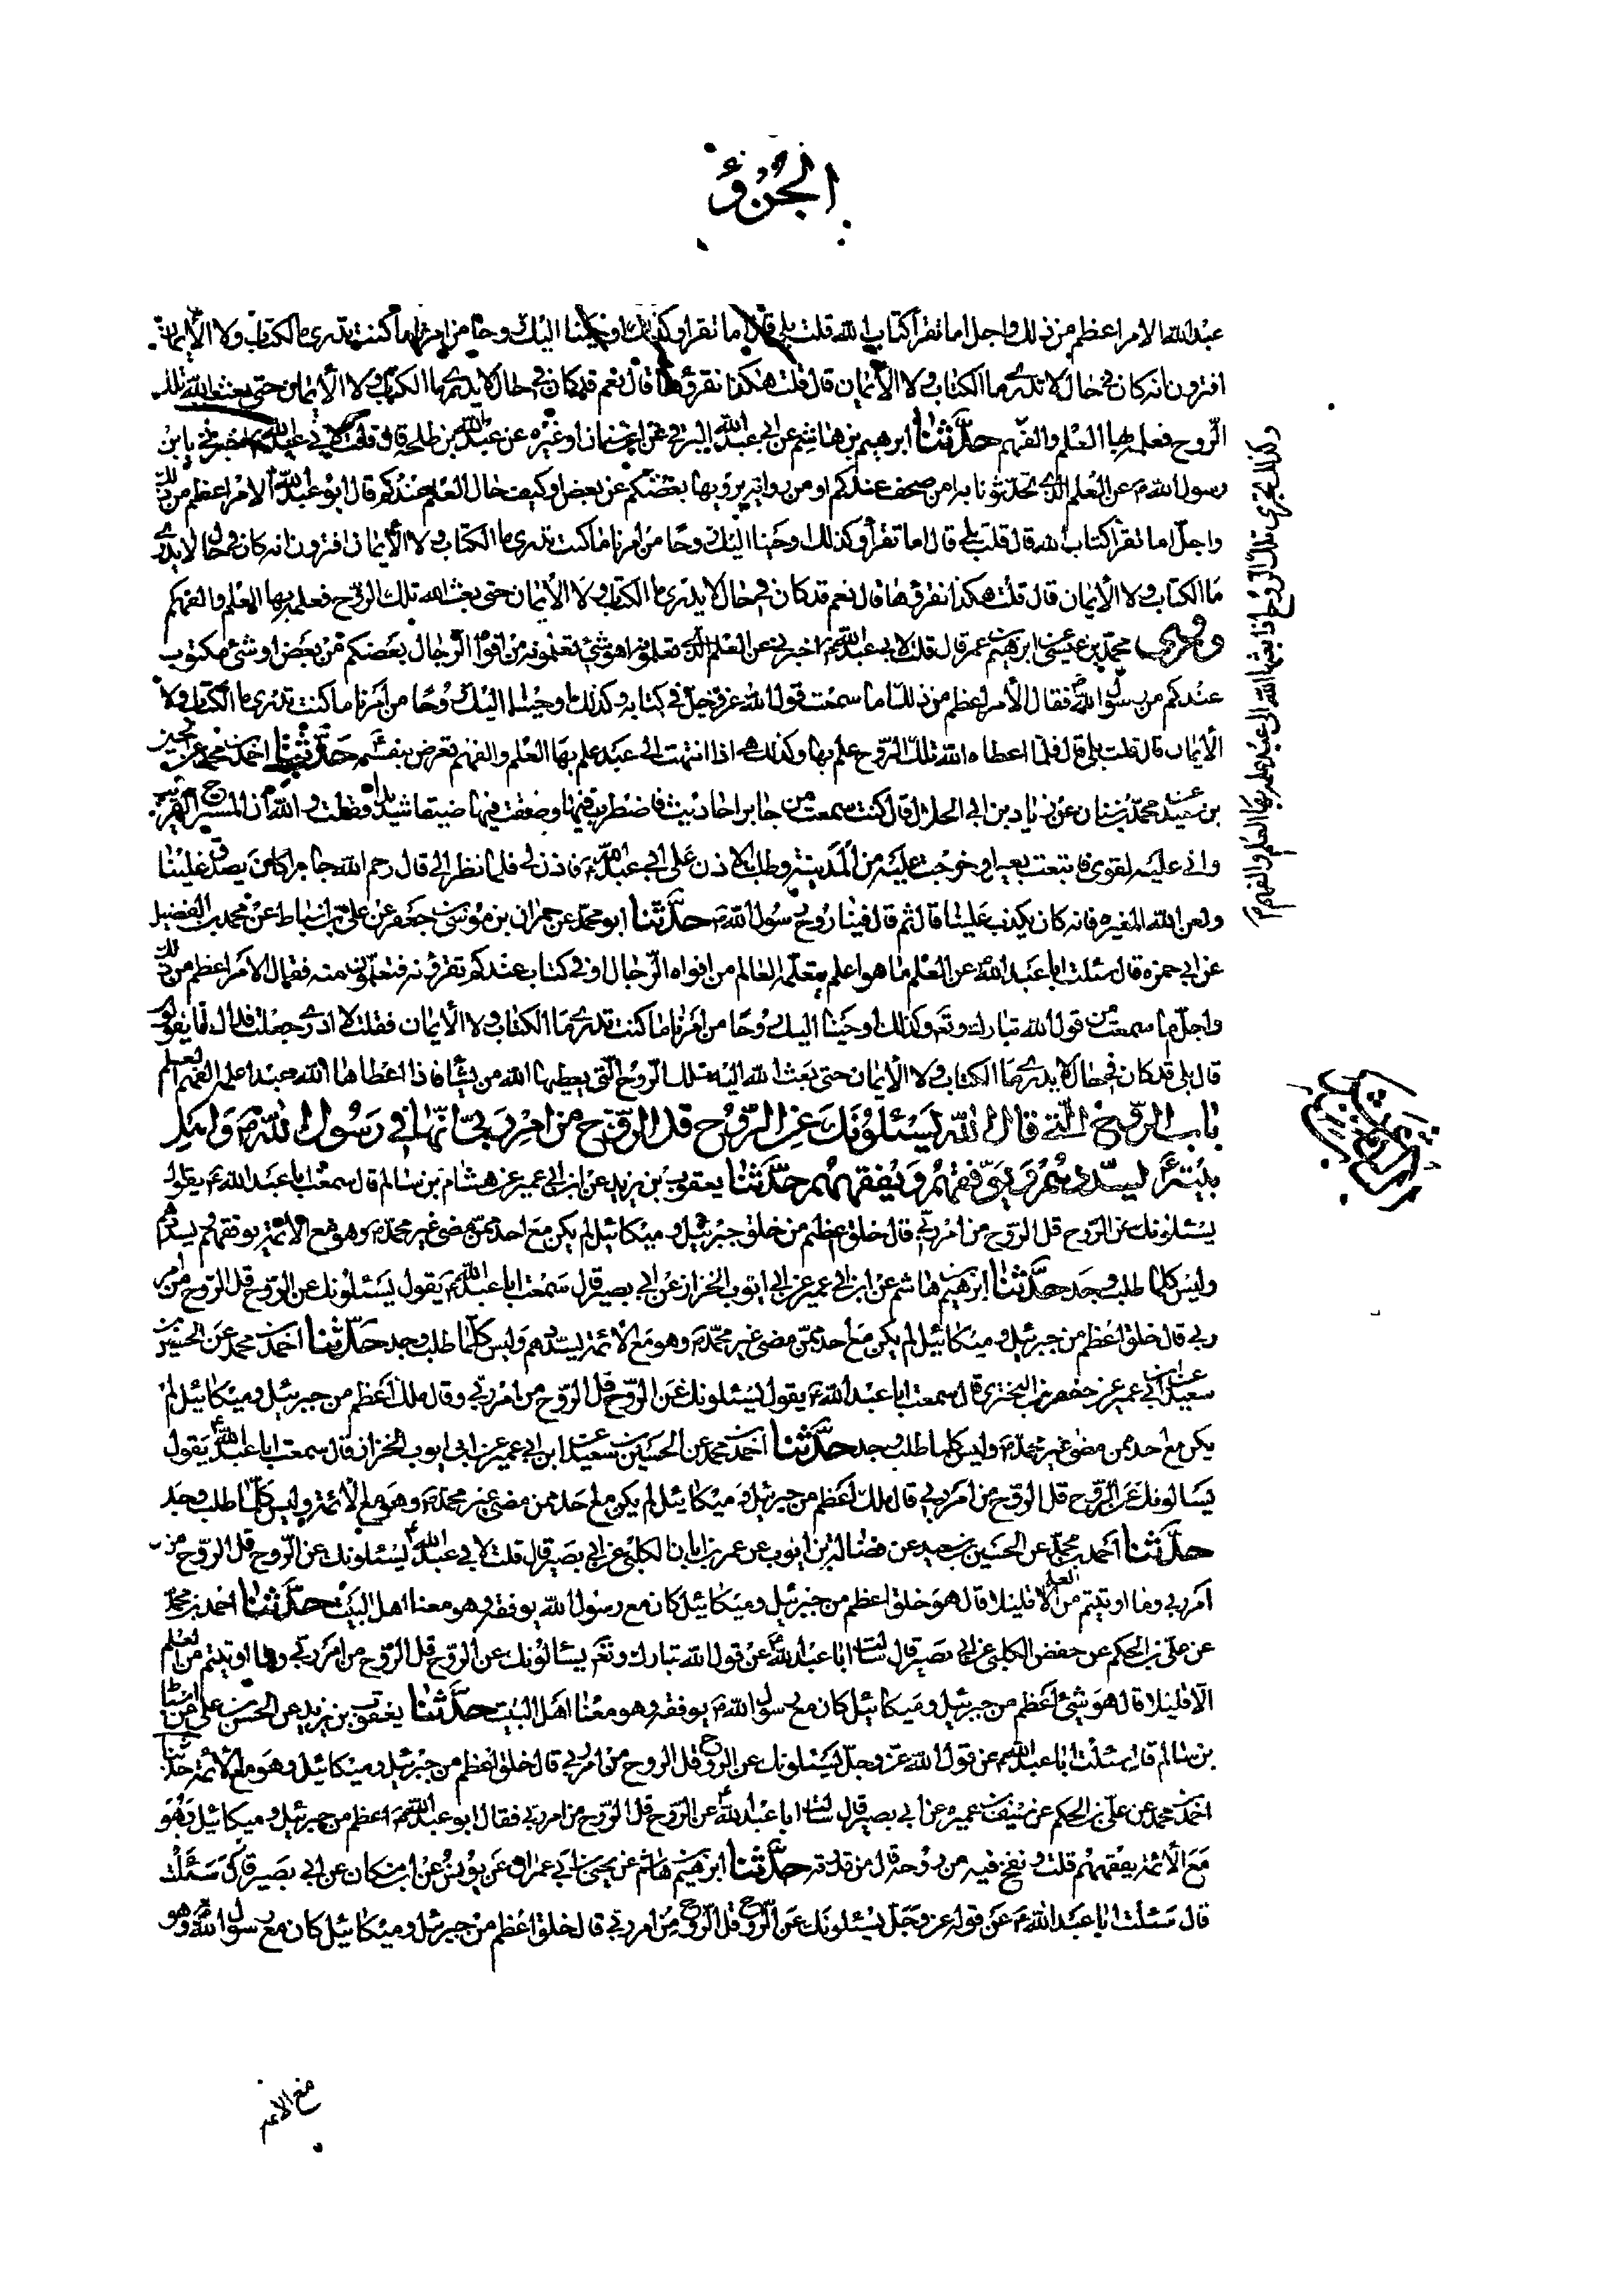 الجزؤ
عبد الله الامر اعظم من ذلك واجل اما تقرأ كتاب الله قلت بلى قال اما تقرا وكذلك اوحينا اليك روحا من امرنا ما كنت تدرى ما الكتاب ولا الأيمان
افترون انه كان فى حال لا تدرى ما الكتاب ولا الأيمان قال قلت هكذا نقرؤها قال نعم قد كان فى حال لا يدرى ما الكتاب ولا الأيمان حتى بعث الله تلك
الرّوح فعلمه بها العلم والفهم حدّثنا ابرهيم بن هاشم عن ابى عبد الله البرقى عن ابن سنان او غيره عن عبد الله بن طلحه قال قلت لابى عبد الله اخبرنى يابن
رسول الله ص عن العلم الذى تحدثونا به امن صحف عندكم او من رواية يرويها بعضكم عن بعض او كيف حال العلم عندكم قال ابو عبد الله الامر اعظم من ذلك
واجلّ اما تقرأ كتاب الله قال قلت بلى قال اما تقرأ وكذلك اوحينا اليك روحا من امرنا ما كنت تدرى ما الكتاب ولا الأيمان افترون انه كان فى حال لا يدرى
ما الكتاب ولا الأيمان قال قلت هكذا نقرؤها قال نعم قد كان فى حال لا يدرى ما الكتاب ولا الأيمان حتى بعث الله تلك الرّوح فعلمه بها العلم والفهم كم
محمّد بن عيسى ابرهيم عمر قال قلت لابى عبد الله اخبرنى عن العلم الذى تعلمونه اهو شئ تعلمونه من افواه الرّجال بعضكم من بعض او شئ مكتوب
عندكم من رسول الله فقال الأمر اعظم من ذلك اما سمعت قول الله عز وجلّ فى كتابه وكذلك اوحينا اليك روحا من امرنا ما كنت تدرى ما الكتاب ولا
الأيمان قال قلت بلى قال فلمّا اعطاه الله تلك الرّوح علم بها وكذلك هى اذا انتهت الى عبد علم بها العلم والفهم يعرض بنفسه حدّثنا احمد بن محمد عن الحسين
بن سعيد عن محمّد بن سنان عن زياد بن ابى الحلال قال كنت سمعت من جابر احاديث فاضطرب فيها وضعفت فيها ضيقا شديدا فقلت والله ان المستراح لقريب
وانى عليه لقوى فابتعت بعيرا وخرجت عليه من المدينة وطلبت الاذن على ابى عبد الله فاذن لى فلما نظر الى قال رحم الله جابرا كان يصدق علينا
ولعن الله المغيره فانه كان يكذب علينا قال ثم قال فينا روح رسول الله ص حدّثنا ابو محمّد عن عمران بن موسى بن جعفر عن على بن اسباط عن محمد بن الفضيل
عن ابى حمزه قال سئلت ابا عبد الله عن العلم ما هو اعلم يتعلّمه العالم من افواه الرّجال او فى كتاب عندكم تقرؤنه فتعلّمون منه فقال الامر اعظم من ذلك
واجلّ اما سمعت من قول الله تبارك وتعالى وكذلك اوحينا اليك روحا من امرنا ما كنت تدرى ما الكتاب ولا الأيمان فقلت لا ادرى جعلت فداك ما يقولون
قال بلى قد كان فى حال لا يدرى ما الكتاب ولا الأيمان حتى بعث الله اليه تلك الرّوح الّتى يعطيها الله من يشاء فاذا اعطاها الله عبدا علمه الفهم العلم
باب الرّوح الّتى قال الله يسئلونك عن الرّوح قل الرّوح من امر ربى انّها فى رسول الله ص واهل
بيته يسدّدهم ويوفّقهم ويفقههم حدّثنا يعقوب بن يزيد عن ابن ابى عمير عن هشام بن سالم قال سمعت ابا عبد الله ع يقول
يسئلونك عن الرّوح قل الرّوح من امر ربّى قال خلق اعظم من خلق جبرئيل وميكائيل لم يكن مع احد ممّن مضى غير محمّد ص وهو مع الائمة يوفقهم يسدّدهم
وليس كلما طلب وجد حدّثنا ابرهيم بن هاشم عن ابن ابى عمير عن ابى ايوب الخزاز عن ابى بصير قال سمعت ابا عبد الله يقول يسئلونك عن الرّوح قل الرّوح من امر
ربى قال خلق اعظم من جبرئيل وميكائيل لم يكن مع احد ممّن مضى غير محمّد ص وهو مع الأئمة يسدّدهم وليس كلّما طلب وجد حدّثنا احمد بن محمد عن الحسين بن
سعيد عن ابن ابى عمير عن حفص بن البخترى قال سمعت ابا عبد الله ع يقول يسئلونك عن الرّوح قل الرّوح من امر ربّى وقال ملك اعظم من جبرئيل وميكائيل لم
يكن مع احد ممن مضى غير محمّد ص وليس كلما طلب وجد حدّثنا احمد بن محمد عن الحسين بن سعيد عن ابن ابى عمير عن ابى ايوب الخزاز قال سمعت ابا عبد الله يقول
يسالونك عن الرّوح قل الرّوح من امر ربى قال ملك اعظم من جبرئيل وميكائيل لم يكن مع احد ممن مضى غير محمّد ص وهو مع الأئمة وليس كلّما طلب وجد
حدّثنا احمد بن محمّد عن الحسين بن سعيد عن فضالة بن ايوب عن عمر بن ابان الكلبى عن ابى بصير قال قلت لابى عبد الله يسئلونك عن الرّوح قل الرّوح من
امر ربى وما اوتيتم من العلم الا قليلا قال هو خلق اعظم من جبرئيل وميكائيل كان مع رسول الله يوفقه وهو معنا اهل البيت حدّثنا احمد بن محمّد
عن علىّ بن الحكم عن حفص الكلبى عن ابى بصير قال سئلت ابا عبد الله عن قول الله تبارك وتعالى يسالونك عن الرّوح قل الرّوح من امر ربّى وما اوتيتم من العلم
الّا قليلا قال هو شئ اعظم من جبرئيل وميكائيل كان مع رسول الله ص يوفقه وهو معنا اهل البيت حدّثنا يعقوب بن يزيد عن الحسن بن على عن اسباط
بن سالم قال سئلت ابا عبد الله عن قول الله عزّ وجلّ يسئلونك عن الروح قل الروح من امر ربى قال خلق اعظم من جبرئيل وميكائيل وهو مع الأئمة حدّثنا
احمد بن محمد عن علىّ بن الحكم عن سيف بن عميره عن ابى بصير قال سئلت ابا عبد الله عن الرّوح قل الرّوح من امر ربى فقال ابو عبد الله اعظم من جبرئيل وميكائيل وهو
مع الأئمة يفقههم قلت ونفخ فيه من روحه قال من قدرته حدّثنا ابرهيم بن هاشم عن يحيى بن ابى عمران عن يونس عن ابن مسكان عن ابى بصير قال سئلت
قال سئلت ابا عبد الله ع عن قوله عز وجلّ يسئلونك عن الرّوح قل الرّوح من امر ربى قال خلق اعظم من جبرئيل وميكائيل كان مع رسول الله وهو
وكذلك تجرى تلك الروح اذا بعثها الله الى عبد علم بها العلم والفهم م
مع الائمه